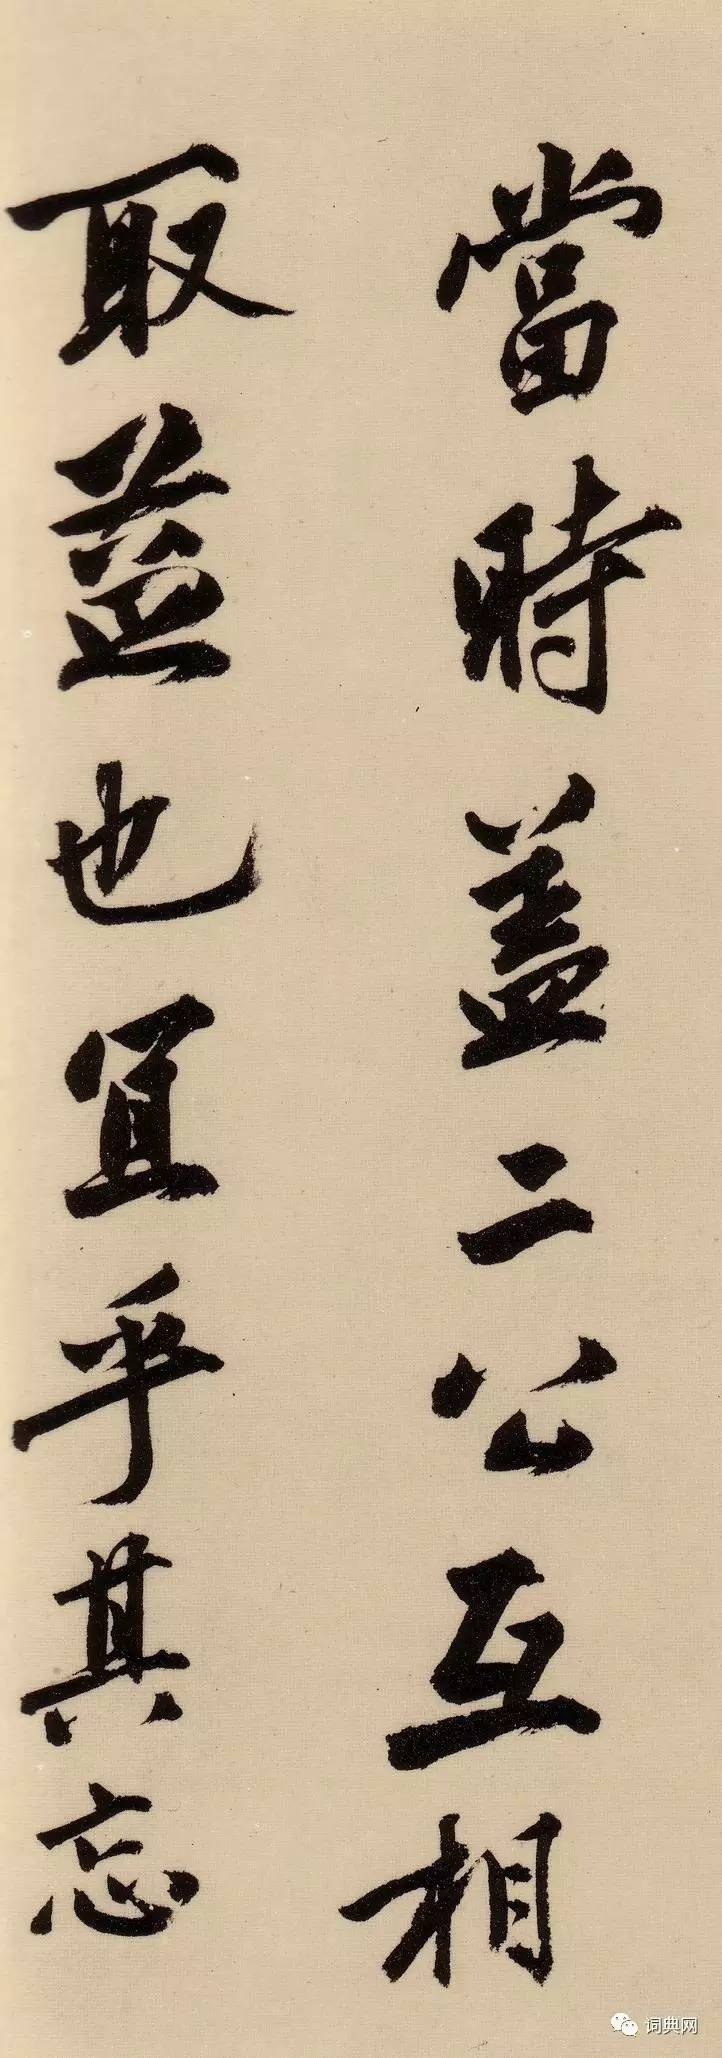 當時蓋二公互相
取益也宜乎其忘
词典网